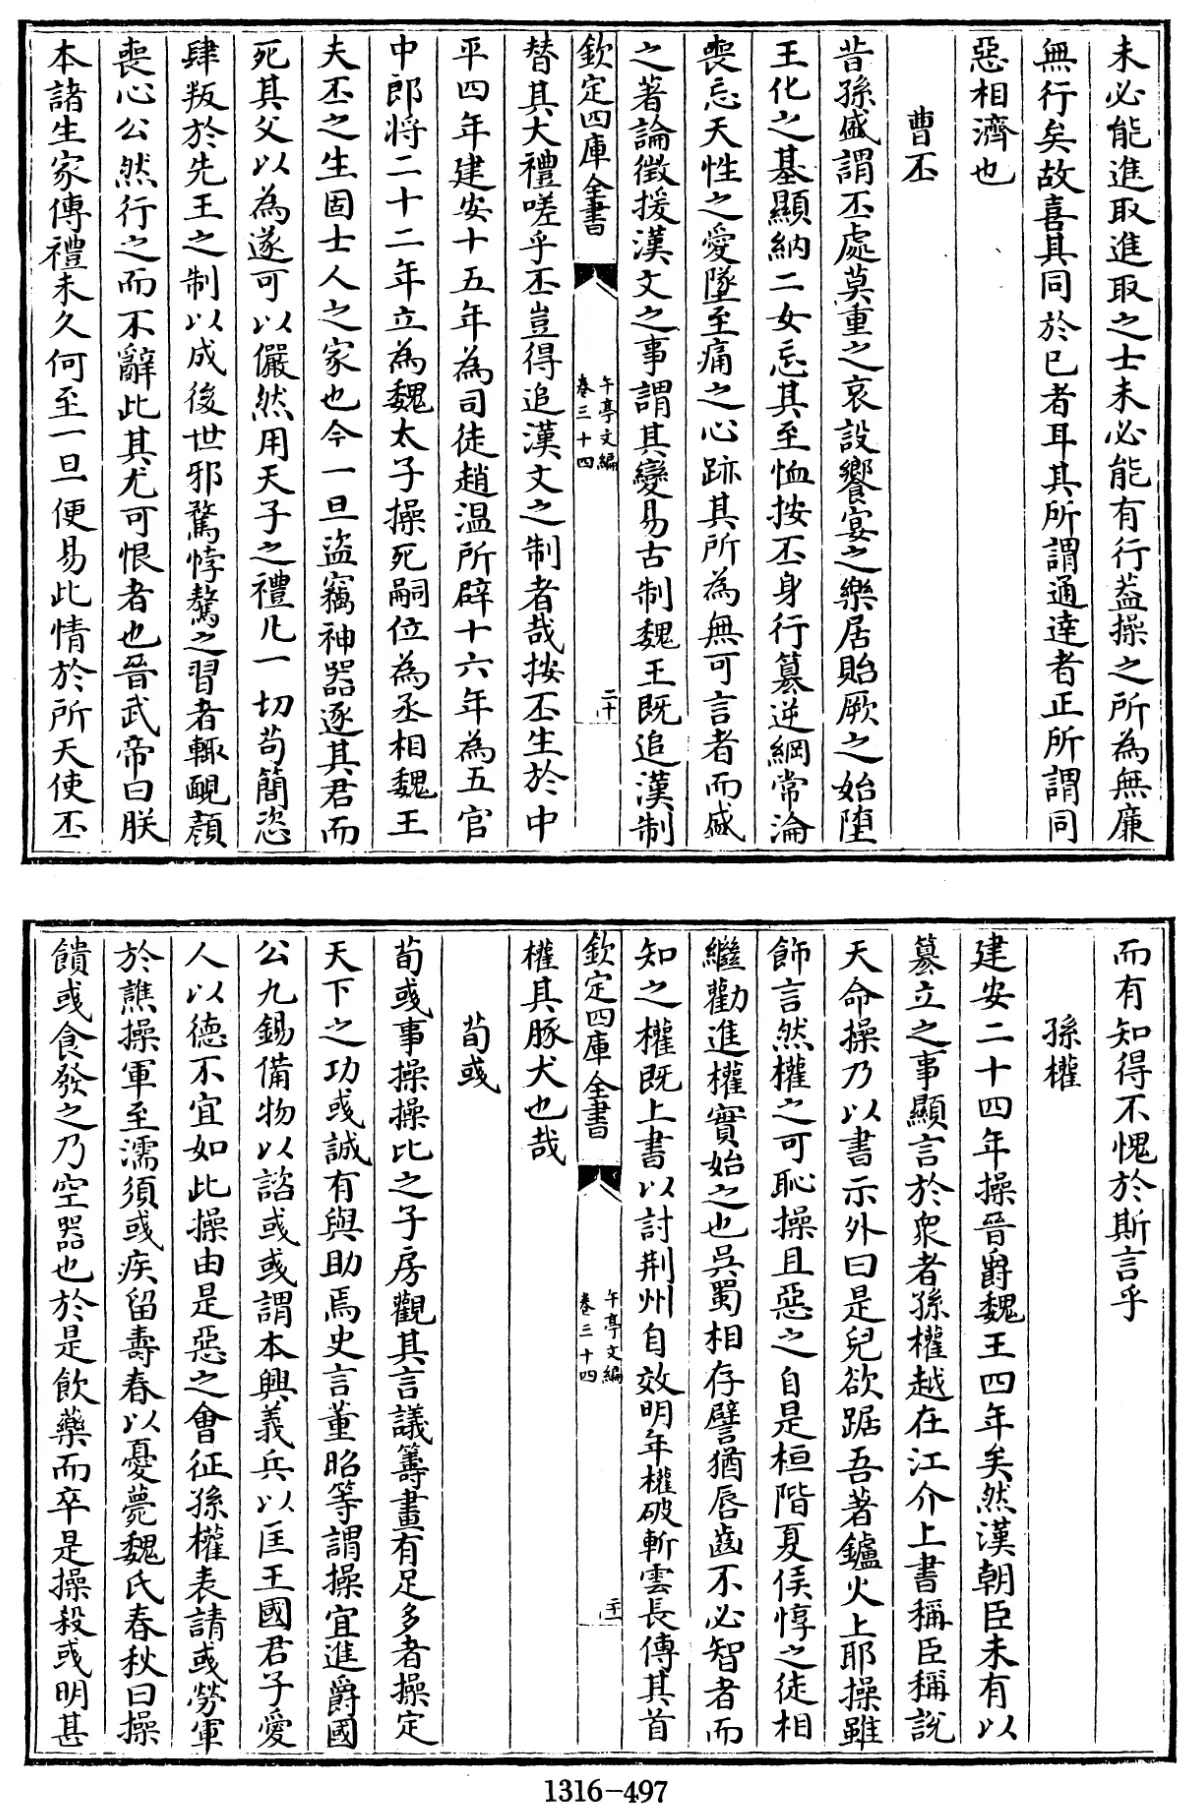 未必能進取進取之士未必能有行葢操之所為無廉
無行矣故喜其同於已者耳其所謂通達者正所謂同
惡相濟也
曹丕
昔孫盛謂丕處莫重之哀設饗宴之樂居貽厥之始墮
王化之基顯納二女忘其至恤按丕身行簒逆綱常淪
喪忘天性之愛墜至痛之心跡其所為無可言者而盛
之著論徵援漢文之事謂其變易古制魏王既追漢制
欽定四庫全書
午亭文編
卷三十四
二十
替其大禮嗟乎丕豈得追漢文之制者哉按丕生於中
平四年建安十五年為司徒趙溫所辟十六年為五官
中郎将二十二年立為魏太子操死嗣位為丞相魏王
夫丕之生固士人之家也今一旦盜竊神器逐其君而
死其父以為遂可以儼然用天子之禮凡一切茍簡恣
肆叛於先王之制以成後世邪驁悖鷔之習者輒靦顏
喪心公然行之而不辭此其尤可恨者也晉武帝曰朕
本諸生家傳禮未久何至一旦便易此情於所天使丕
而有知得不愧於斯言乎
孫權
建安二十四年操晉爵魏王四年矣然漢朝臣未有以
簒立之事顯言於衆者孫權越在江介上書稱臣稱說
天命操乃以書示外曰是兒欲踞吾著鑪火上耶操雖
飾言然權之可恥操且惡之自是桓階夏侯惇之徒相
繼勸進權實始之也吳蜀相存譬猶唇齒不必智者而
知之權既上書以討荆州自效明年權破斬雲長傳其首
欽定四庫全書
午亭文編
卷三十四
二十一
權其豚犬也哉
荀彧
荀彧事操操比之子房觀其言議籌畫有足多者操定
天下之功彧誠有與助焉史言董昭等謂操宜進爵國
公九錫備物以諮彧彧謂本興義兵以匡王國君子愛
人以德不宜如此操由是惡之會征孫權表請彧勞軍
於譙操軍至濡須彧疾留壽春以憂薨魏氏春秋曰操
饋彧食發之乃空器也於是飲藥而卒是操殺彧明甚
1316-497